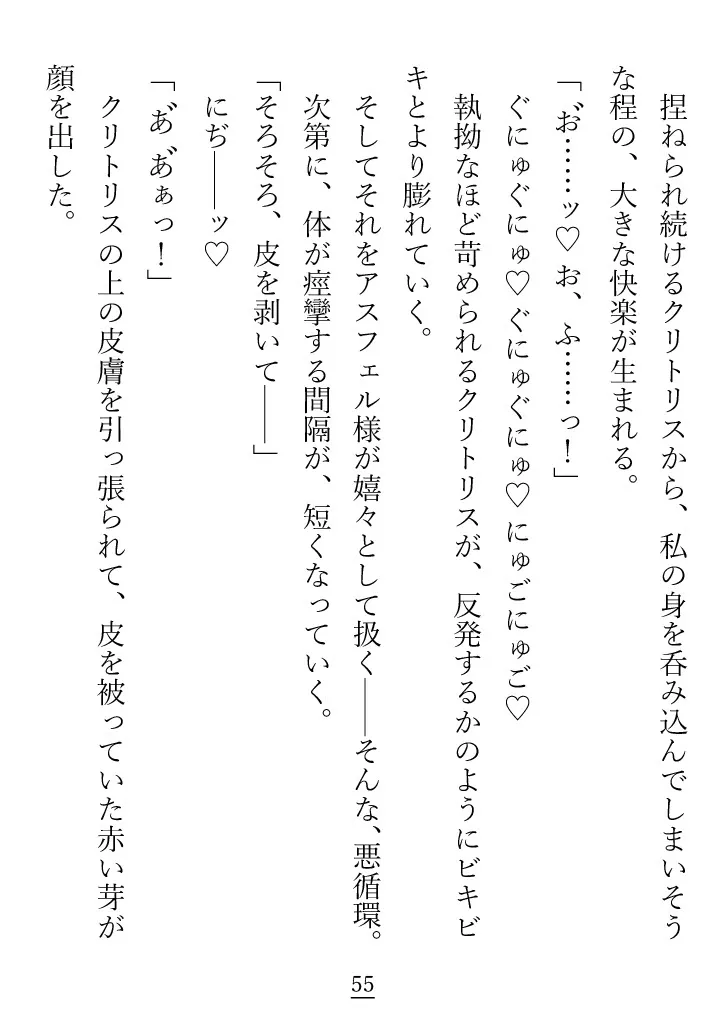 捏ねられ続けるクリトリスから、私の身を呑み込んでしまいそう
な程の、大きな快楽が生まれる。
「゛お……ッ♡ お、ふ……っ！」
ぐにゅぐにゅ♡ ぐにゅぐにゅ♡ にゅごにゅご♡
執拗なほど苛められるクリトリスが、反発するかのようにビキビ
キとより膨れていく。
そしてそれをアスフェル様が嬉々として扱く――そんな、悪循環。
次第に、体が痙攣する間隔が、短くなっていく。
「そろそろ、皮を剥いて――」
にぢ――ッ♡
「あ゛あ゛ぁっ！」
クリトリスの上の皮膚を引っ張られて、皮を被っていた赤い芽が
顔を出した。
55